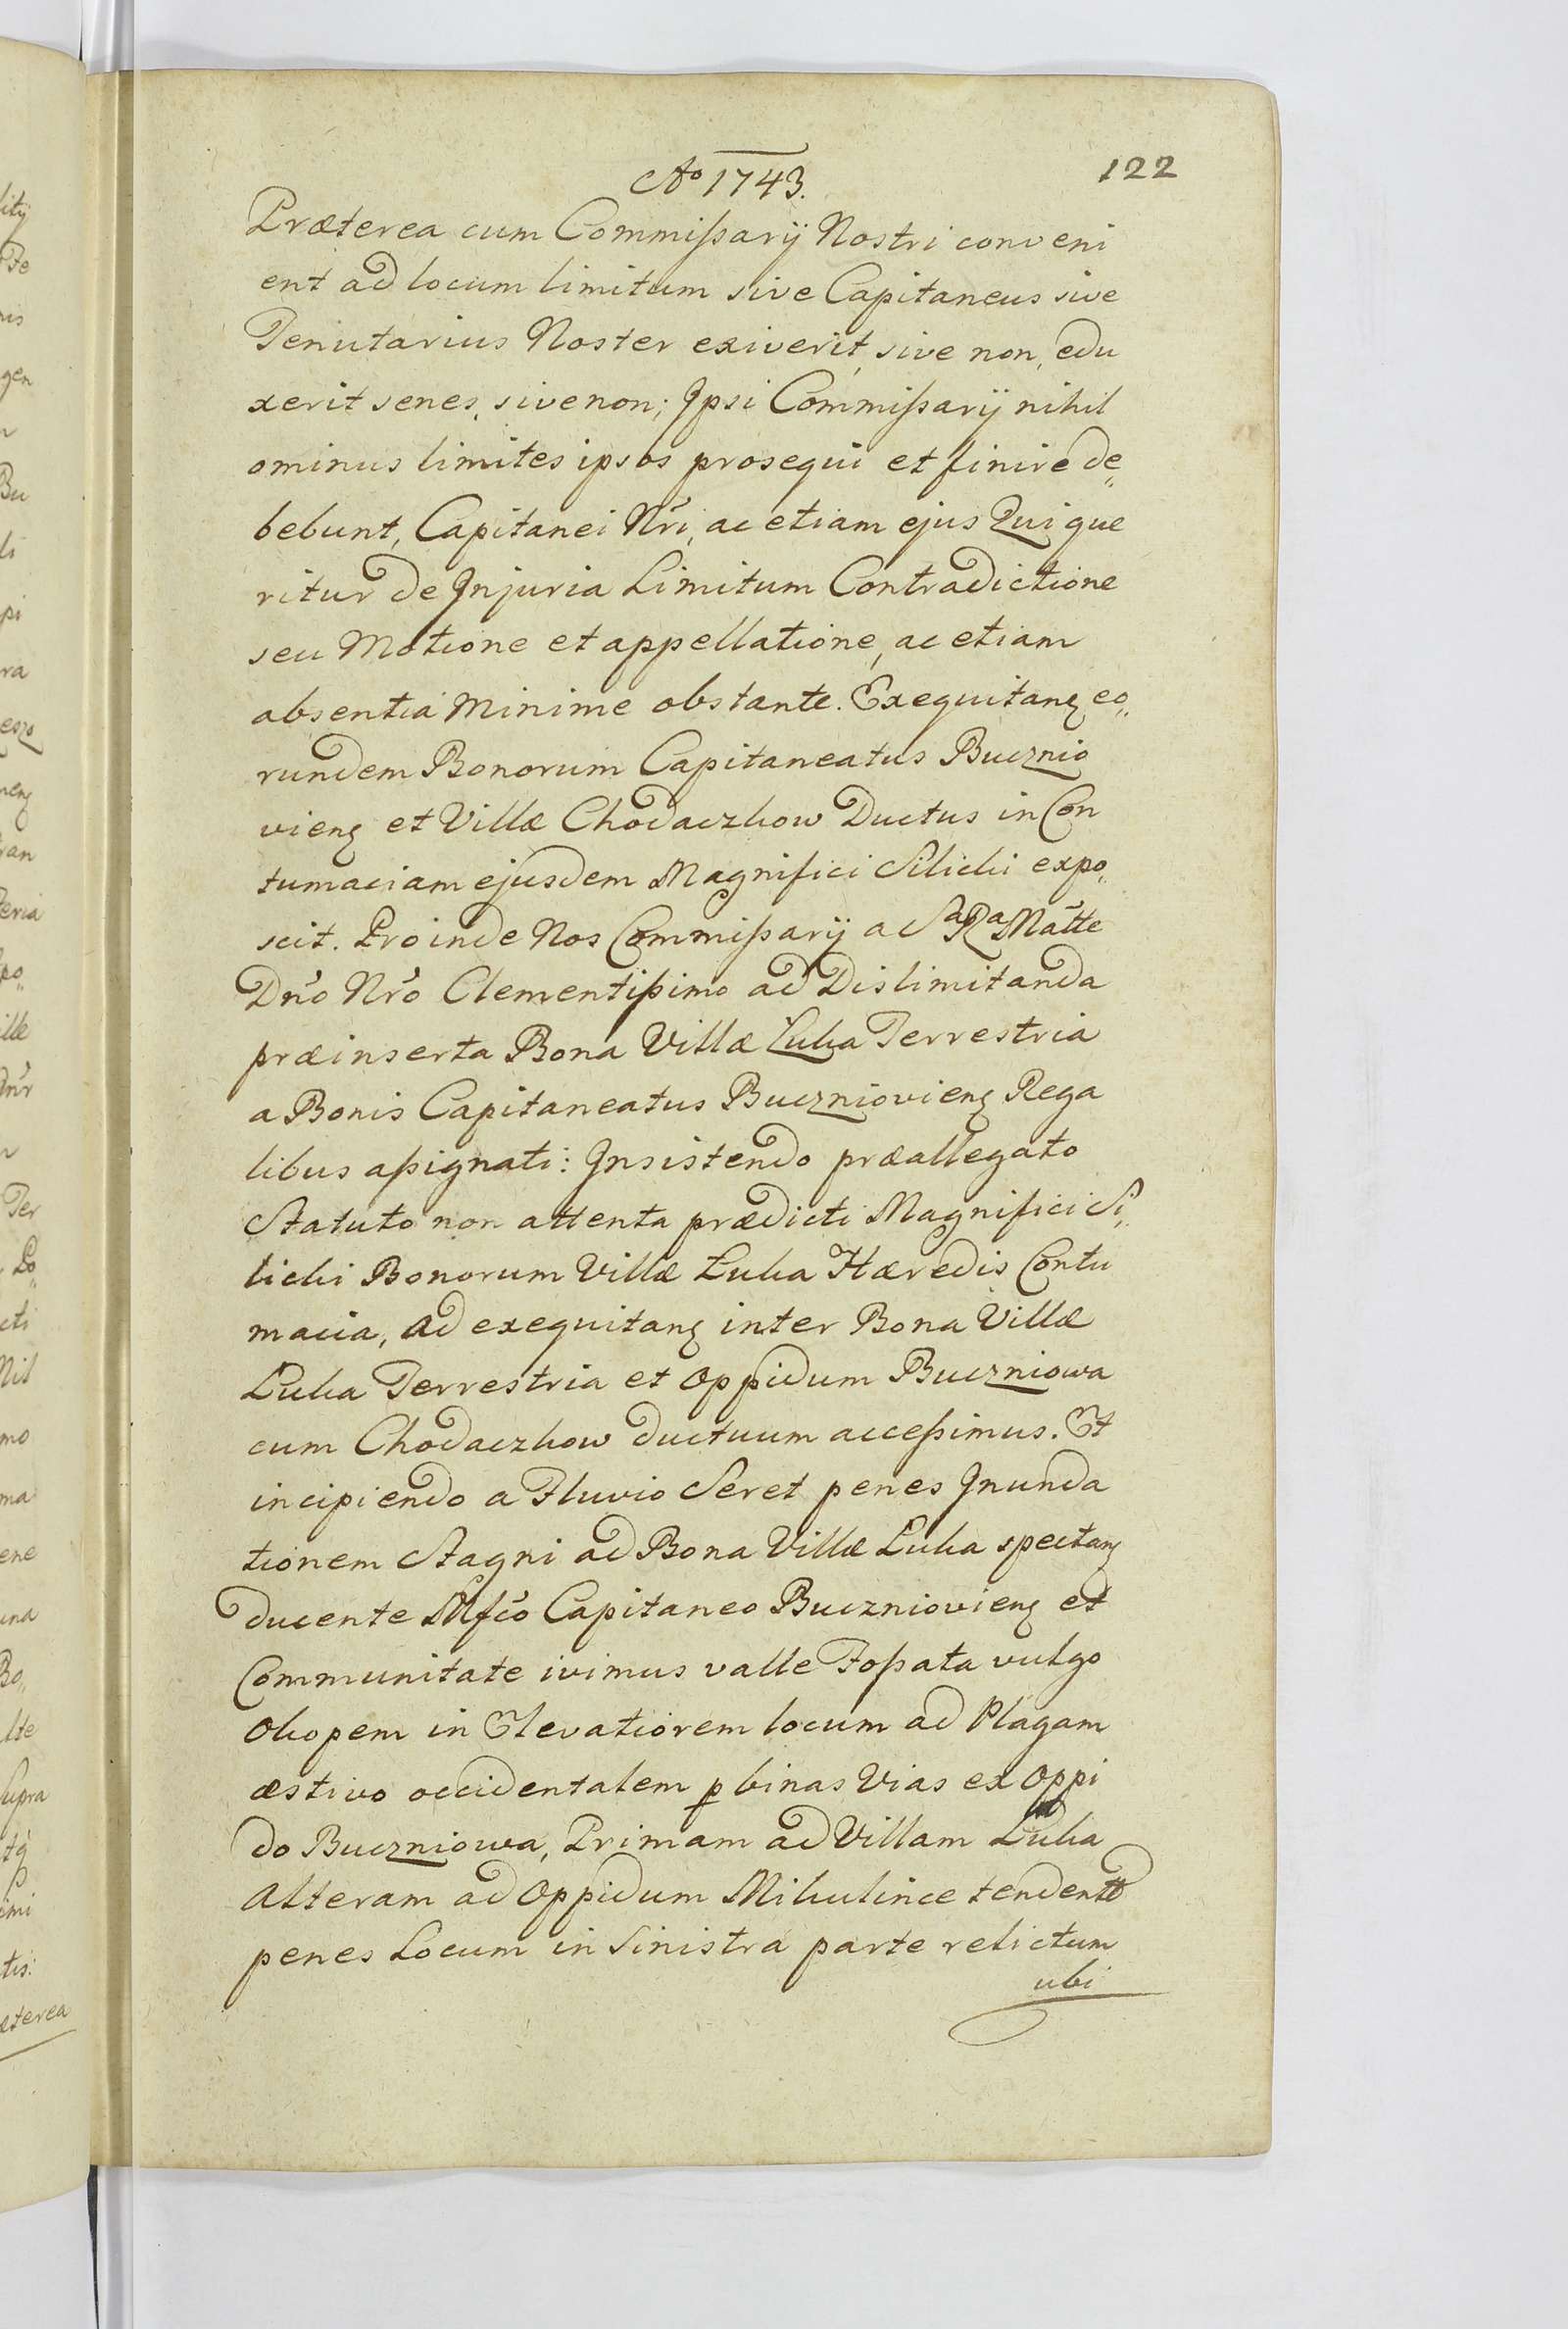 Ao 1743.
122
Præterea cum Commißarij Nostri conveni
ent ad locum limitum sive Capitaneus sive
Tenutarius Noster exiverit, sive non, edu
xerit senes, sive non; Ipsi Commißarij nihil
ominus limites ipsos prosequi et finire de„
bebunt, Capitanei Nri, ac etiam ejus Qui que
ritur de Injuria Limitum Contradictione
seu Motione et appellatione, ac etiam
absentia Minime obstante. Exequitanꝫ eo„
rundem Bonorum Capitaneatus Bucznio
vienꝫ et Villæ Chodaczkow Ductus in Con
tumaciam ejusdem Magnifici Silicki expo„
scit. Proinde Nos Commißarij a Sa Ra Matte
Dno Nro Clementißimo ad Dislimitanda
præinserta Bona Villæ Łuka Terrestria
a Bonis Capitaneatus Buczniovienꝫ Rega
libus aßignati: Insistendo præallegato
Statuto non attenta prædicti Magnifici Si„
licki Bonorum Villæ Łuka Hæredis Contu
macia, ad exequitanꝫ inter Bona Villæ
Łuka Terrestria et Oppidum Buczniowa
cum Chodaczkow ductuum acceßimus. Et
incipiendo a Fluvio Seret penes Inunda
tionem Stagni ad Bona Villæ Łuka spectanꝫ
ducente Mfco Capitaneo Buczniovienꝫ et
Communitate ivimus valle Foßata vulgo
Okopem in Elevatiorem locum ad Plagam
æstivo occidentalem p binas Vias ex Oppi
do Buczniowa, Primam ad Villam Łuka
Alteram ad Oppidum Mikulince tendente
penes Locum in Sinistra parte relictum
ubi